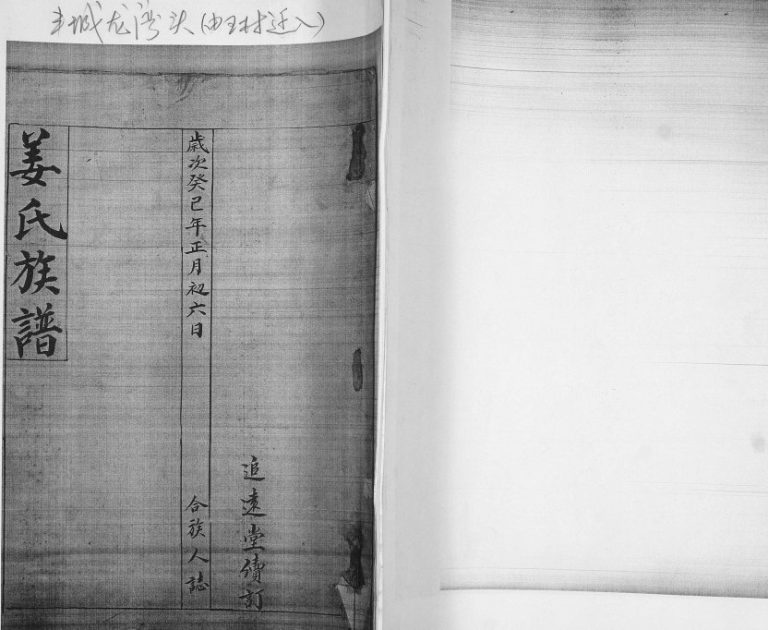 丰城龙湾头(由王村迁入)
姜氏族譜
歲次癸巳年正月初六日
合族人誌
追遠堂續訂